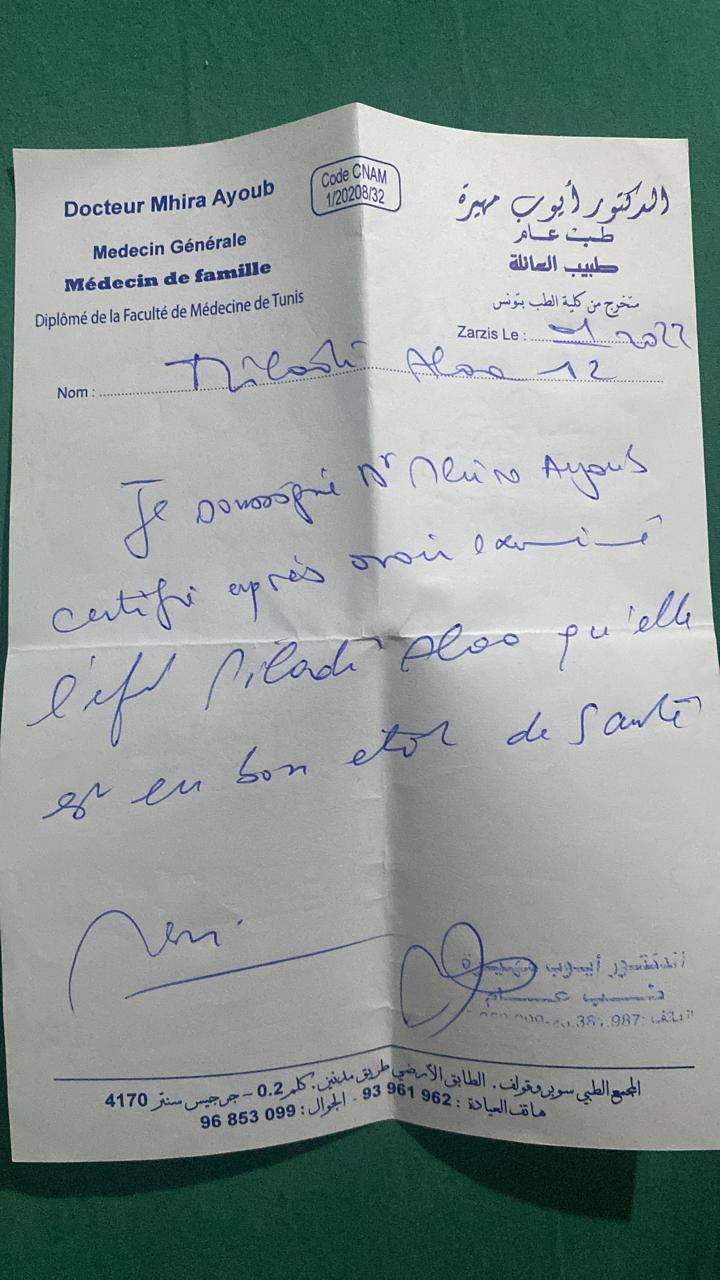 Docteur Mhira Ayoub
Medecin Générale
Médecin de famille
Diplômé de la Faculté de Médecine de Tunis
Code CNAM
1/20208/32
الدكتور أيوب مهيرة
طب عام
طبيب العائلة
متخرج من كلية الطب بتونس
Zarzis Le : 2022
Nom : Miladi Alaa 12
Je soussigné Dr Mhira Ayoub
certifie après avoir examiné
l'eft Miladi Alaa qu'elle
est en bon etat de Santé
الدكتور أيوب مهيرة
طب عام
المجمع الطبي سوبر وقولف. الطابق الأرضي طريق مدنين. كلم 0.2 – جرجيس سنتر 4170
هاتف العيادة : 93 961 962 - الجوال : 96 853 099